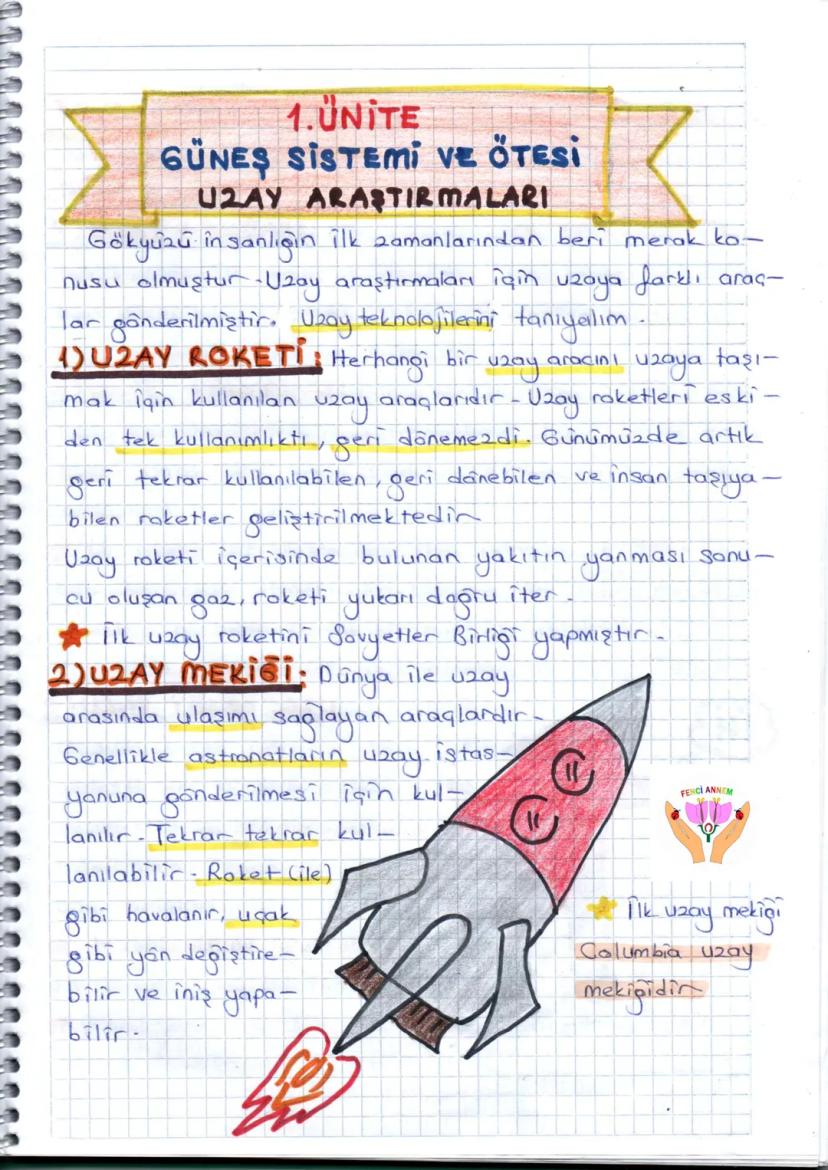 1. ÜNİTE
GÜNEŞ SİSTEMİ VE ÖTESİ
UZAY ARAŞTIRMALARI
Gökyüzü insanlığın ilk zamanlarından beri merak ko-
nusu olmuştur. Uzay araştırmaları için uzaya farklı araç-
lar gönderilmiştir. Uzay teknolojilerini tanıyalım.
1) UZAY ROKETİ: Herhangi bir uzay aracını uzaya taşı-
mak için kullanılan uzay araçlarıdır. Uzay roketleri eski-
den tek kullanımlıktı, geri dönemezdi. Günümüzde artık
geri tekrar kullanılabilen, geri dönebilen ve insan taşıya-
bilen roketler geliştirilmektedir
Uzay roketi içerisinde bulunan yakıtın yanması sonu-
cu oluşan gaz, roketi yukarı doğru iter.
İlk uzay roketini Sovyetler Birliği yapmıştır.
2) UZAY MEKİĞİ: Dünya ile uzay
arasında ulaşımı sağlayan araçlardır.
Genellikle astronatların uzay istas-
yonuna gönderilmesi için kul-
lanılır. Tekrar tekrar kul-
lanılabilir. Roket (ile)
gibi havalanır, uçak
gibi yön değiştire-
bilir ve iniş yapa-
bilir.
FENCİ ANNEM
İlk uzay mekiği
Columbia uzay
mekiğidir